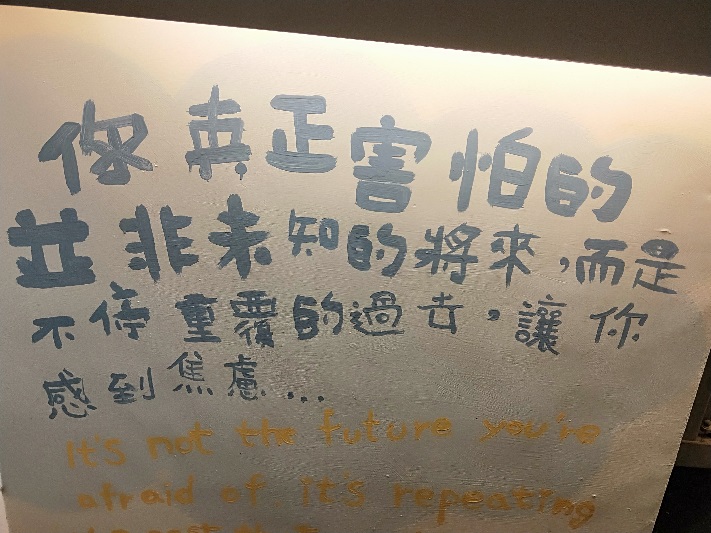 你真正害怕的
並非未知的將來,而是
不停重覆的過去,讓你
感到焦慮...
It's not the future you're
afraid of. It's repeating